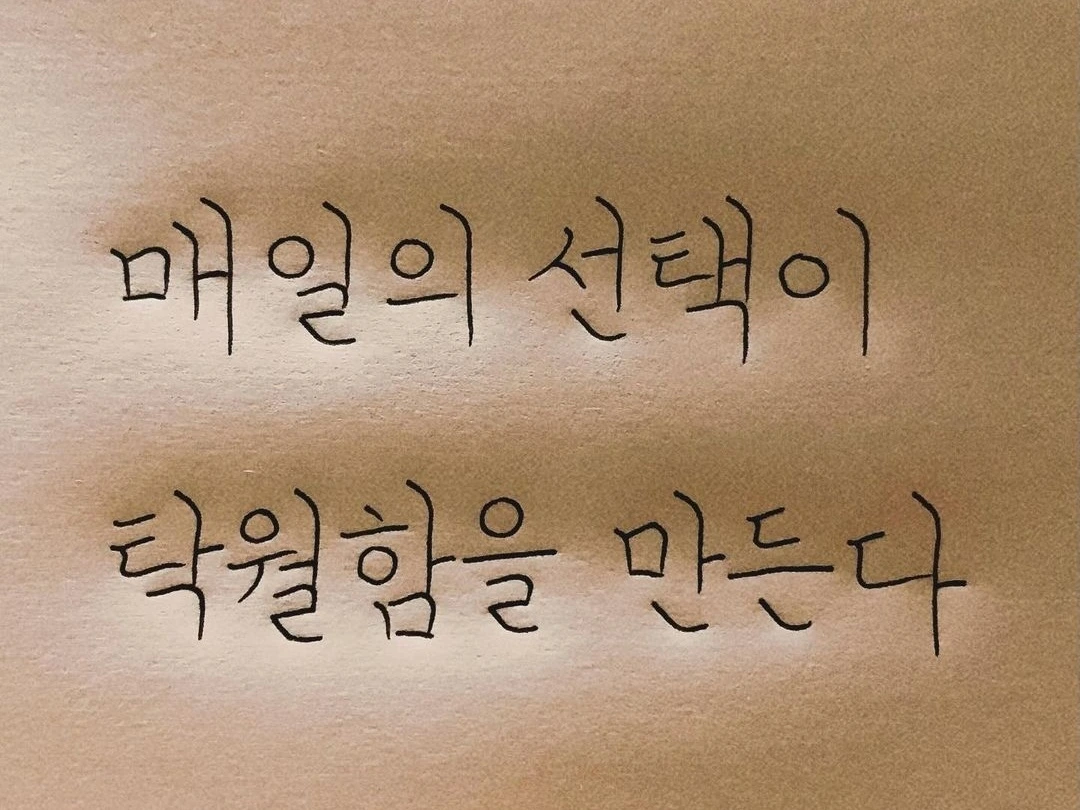 매일의 선택이
탁월함을 만든다